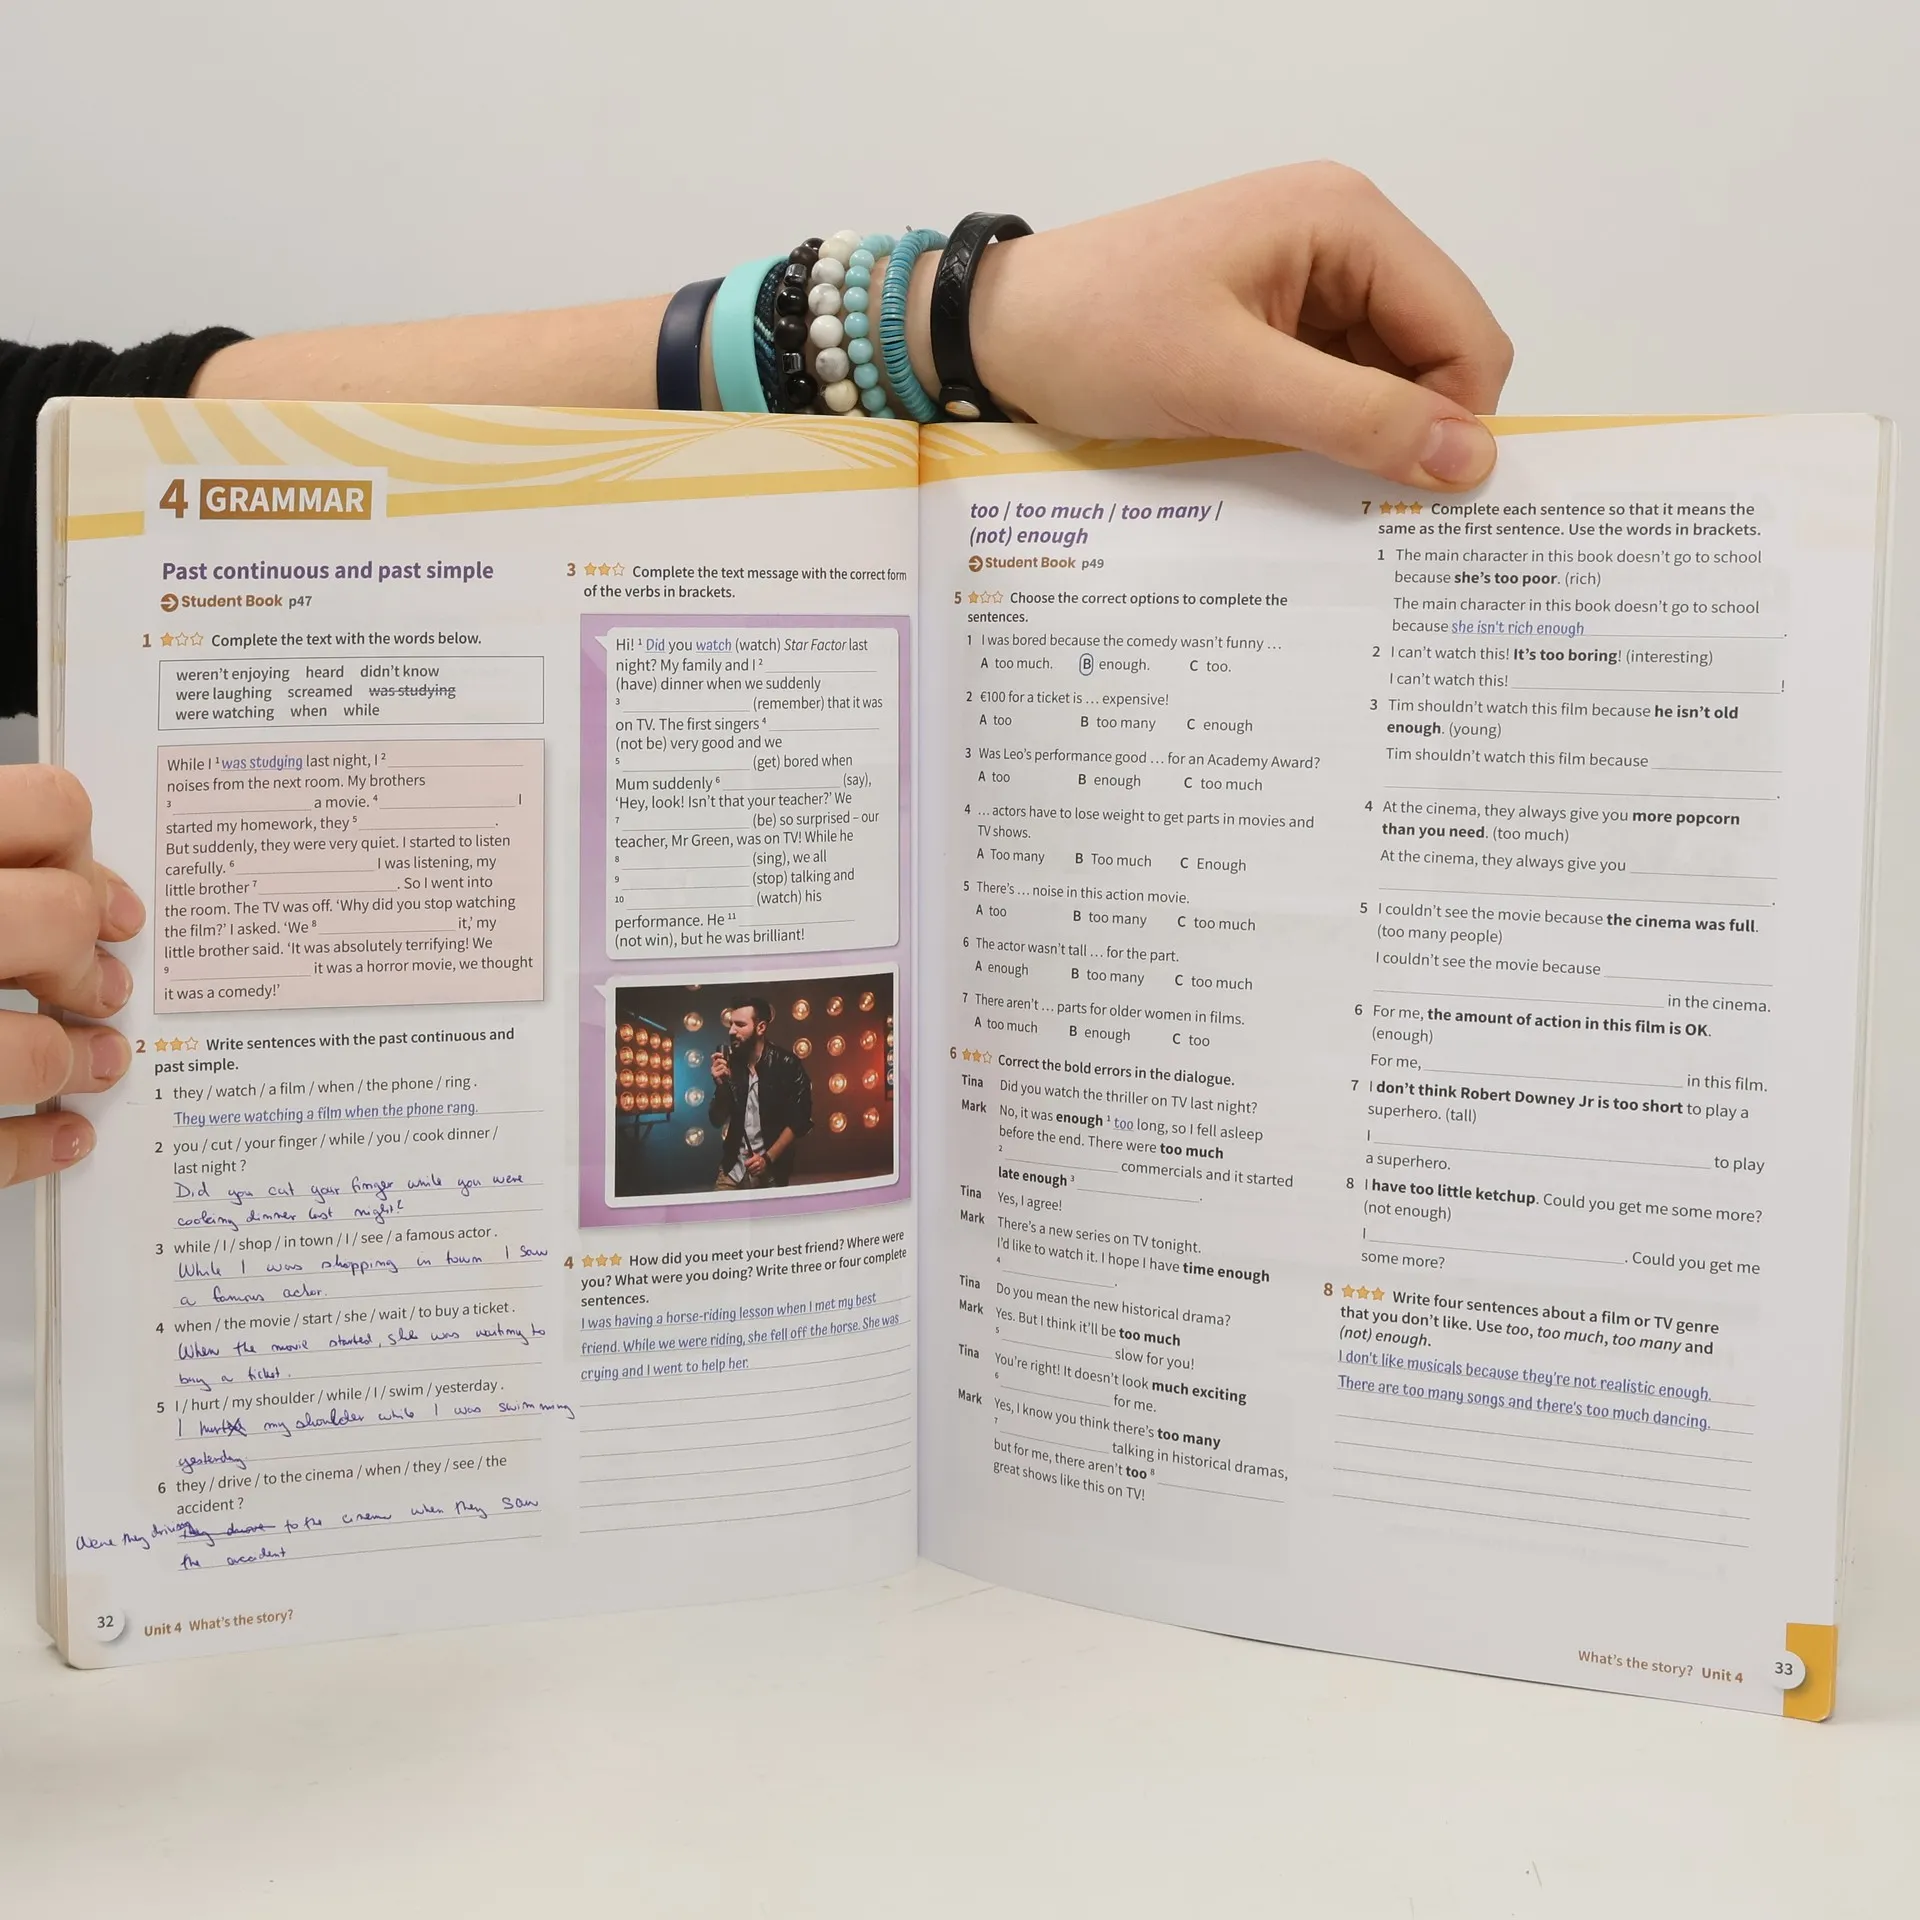 4 GRAMMAR
Past continuous and past simple
Student Book p47
1 Complete the text with the words below.
weren't enjoying heard didn't know
were laughing screamed was studying
were watching when while
While I ¹ was studying last night, I ²
noises from the next room. My brothers
³ a movie. ⁴ I
started my homework, they ⁵ .
But suddenly, they were very quiet. I started to listen
carefully. ⁶ I was listening, my
little brother ⁷ . So I went into
the room. The TV was off. 'Why did you stop watching
the film?' I asked. 'We ⁸ it,' my
little brother said. 'It was absolutely terrifying! We
⁹ it was a horror movie, we thought
it was a comedy!'
2 Write sentences with the past continuous and
past simple.
1 they / watch / a film / when / the phone / ring .
They were watching a film when the phone rang.
2 you / cut / your finger / while / you / cook dinner /
last night ?
Did you cut your finger while you were
cooking dinner last night?
3 while / I / shop / in town / I / see / a famous actor .
While I was shopping in town I saw
a famous actor.
4 when / the movie / start / she / wait / to buy a ticket .
When the movie started, she was waiting to
buy a ticket.
5 I / hurt / my shoulder / while / I / swim / yesterday .
I hurt my shoulder while I was swimming
yesterday
6 they / drive / to the cinema / when / they / see / the
accident ?
Were they driving they drove to the cinema when they saw
the accident
32 Unit 4 What's the story?
3 Complete the text message with the correct form
of the verbs in brackets.
Hi! ¹ Did you watch (watch) Star Factor last
night? My family and I ²
(have) dinner when we suddenly
³ (remember) that it was
on TV. The first singers ⁴
(not be) very good and we
⁵ (get) bored when
Mum suddenly ⁶ (say),
'Hey, look! Isn't that your teacher?' We
⁷ (be) so surprised – our
teacher, Mr Green, was on TV! While he
⁸ (sing), we all
⁹ (stop) talking and
¹⁰ (watch) his
performance. He ¹¹
(not win), but he was brilliant!
4 How did you meet your best friend? Where were
you? What were you doing? Write three or four complete
sentences.
I was having a horse-riding lesson when I met my best
friend. While we were riding, she fell off the horse. She was
crying and I went to help her.
too / too much / too many /
(not) enough
Student Book p49
5 Choose the correct options to complete the
sentences.
1 I was bored because the comedy wasn't funny …
A too much. B enough. C too.
2 €100 for a ticket is … expensive!
A too B too many C enough
3 Was Leo's performance good … for an Academy Award?
A too B enough C too much
4 … actors have to lose weight to get parts in movies and
TV shows.
A Too many B Too much C Enough
5 There's … noise in this action movie.
A too B too many C too much
6 The actor wasn't tall … for the part.
A enough B too many C too much
7 There aren't … parts for older women in films.
A too much B enough C too
6 Correct the bold errors in the dialogue.
Tina Did you watch the thriller on TV last night?
Mark No, it was enough ¹ too long, so I fell asleep
before the end. There were too much
² commercials and it started
late enough ³ .
Tina Yes, I agree!
Mark There's a new series on TV tonight.
I'd like to watch it. I hope I have time enough
⁴ .
Tina Do you mean the new historical drama?
Mark Yes. But I think it'll be too much
⁵ slow for you!
Tina You're right! It doesn't look much exciting
⁶ for me.
Mark Yes, I know you think there's too many
⁷ talking in historical dramas,
but for me, there aren't too ⁸
great shows like this on TV!
7 Complete each sentence so that it means the
same as the first sentence. Use the words in brackets.
1 The main character in this book doesn't go to school
because she's too poor. (rich)
The main character in this book doesn't go to school
because she isn't rich enough .
2 I can't watch this! It's too boring! (interesting)
I can't watch this! !
3 Tim shouldn't watch this film because he isn't old
enough. (young)
Tim shouldn't watch this film because
.
4 At the cinema, they always give you more popcorn
than you need. (too much)
At the cinema, they always give you
.
5 I couldn't see the movie because the cinema was full.
(too many people)
I couldn't see the movie because
in the cinema.
6 For me, the amount of action in this film is OK.
(enough)
For me, in this film.
7 I don't think Robert Downey Jr is too short to play a
superhero. (tall)
I to play
a superhero.
8 I have too little ketchup. Could you get me some more?
(not enough)
I . Could you get me
some more?
8 Write four sentences about a film or TV genre
that you don't like. Use too, too much, too many and
(not) enough.
I don't like musicals because they're not realistic enough.
There are too many songs and there's too much dancing.
What's the story? Unit 4 33